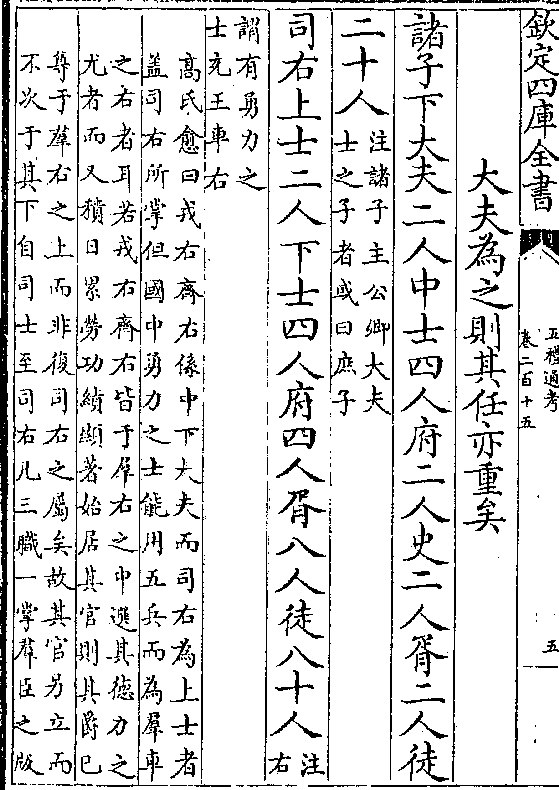 欽定四庫全書
五禮通考
卷二百十五
五
大夫為之則其任亦重矣
諸子下大夫二人中士四人府二人史二人胥二人徒
二十人
注諸子主公卿大夫
士之子者或曰庶子
司右上士二人下士四人府四人胥八人徒八十人
注
右
謂有勇力之
士充王車右
髙氏愈曰戎右齊右係中下大夫而司右為上士者
蓋司右所掌但國中勇力之士能用五兵而為羣車
之右者耳若戎右齊右皆于羣右之中選其德力之
尤者而又積日累勞功績顯著始居其官則其爵已
尊于羣右之上而非復司右之屬矣故其官另立而
不次于其下自司士至司右凡三職一掌羣臣之版